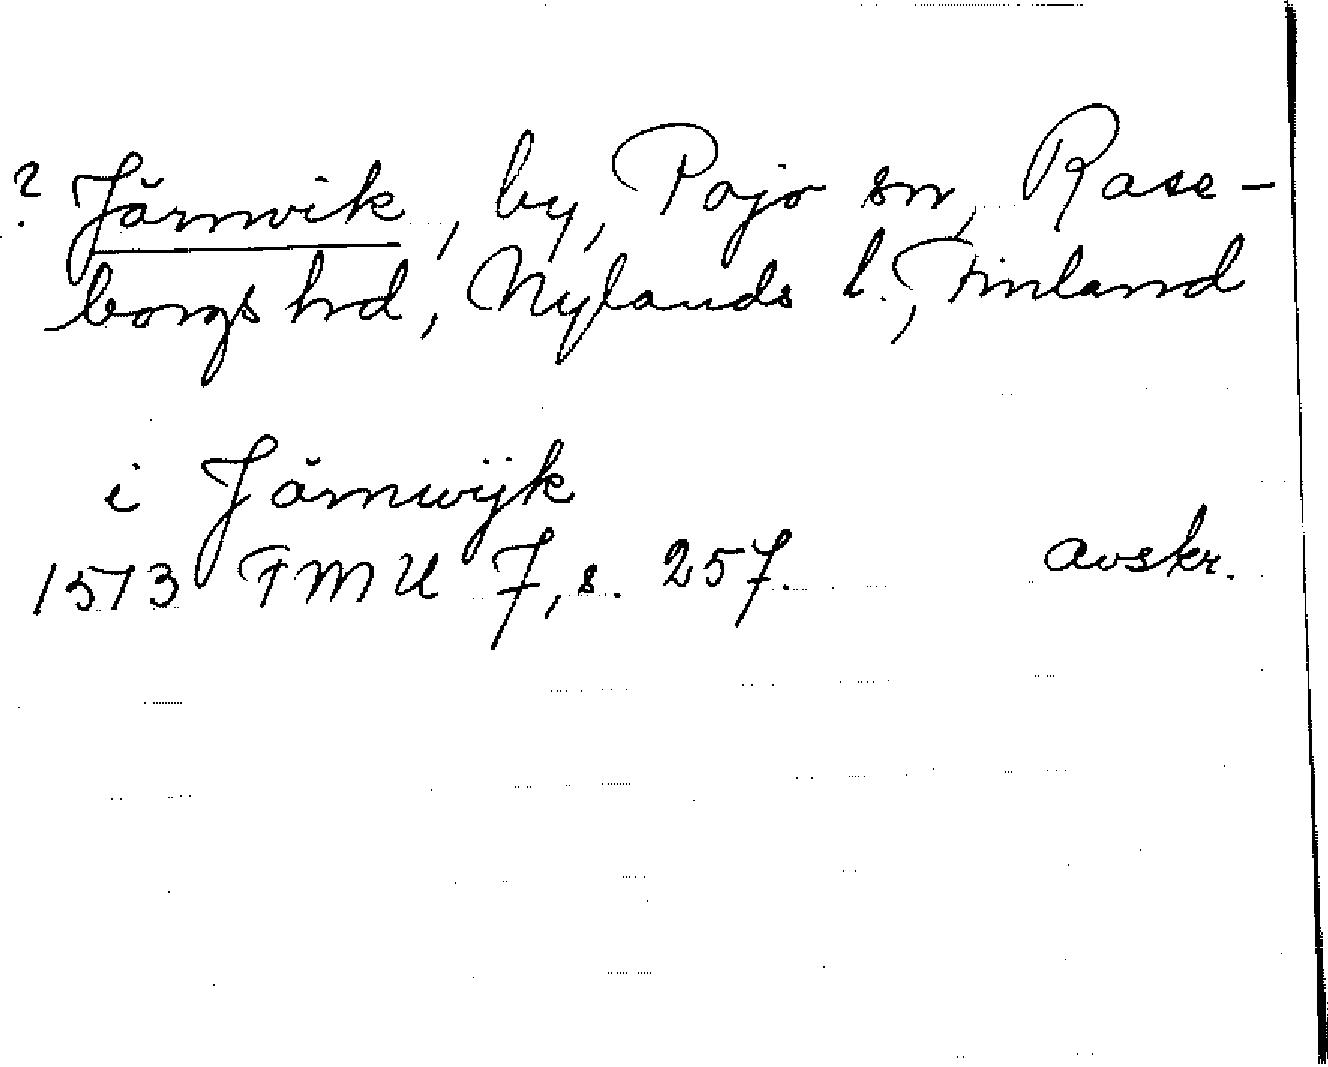 ? Järnvik, by, Pojo sn, Rase-
borgs hd, Nylands l., Finland
i Järnwijk
1573 FMU 7, s. 257. avskr.